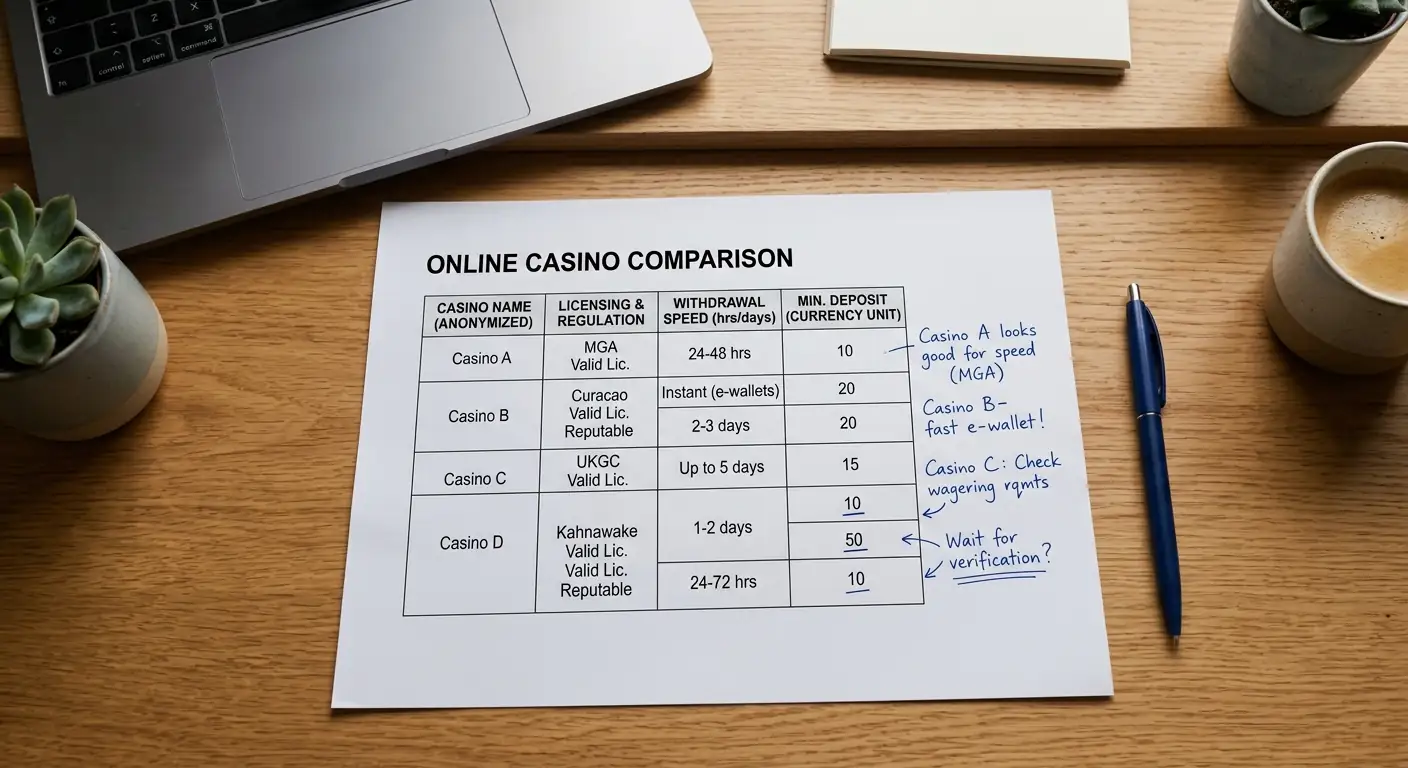 fn
control
option
command
Z
X
⌘
ONLINE CASINO COMPARISON
CASINO NAME
(ANONYMIZED)
LICENSING &
REGULATION
WITHDRAWAL
SPEED (hrs/days)
MIN. DEPOSIT
(CURRENCY UNIT)
Casino A
MGA
Valid Lic.
24-48 hrs
10
Casino A looks
good for speed
(MGA)
Casino B
Curacao
Valid Lic.
Reputable
Instant (e-wallets)
20
2-3 days
20
Casino B–
fast e-wallet!
Casino C
UKGC
Valid Lic.
Up to 5 days
15
Casino C: Check
wagering rqmts
Casino D
Kahnawake
Valid Lic.
Valid Lic.
Reputable
1-2 days
10
50
24-72 hrs
10
Wait for
verification?